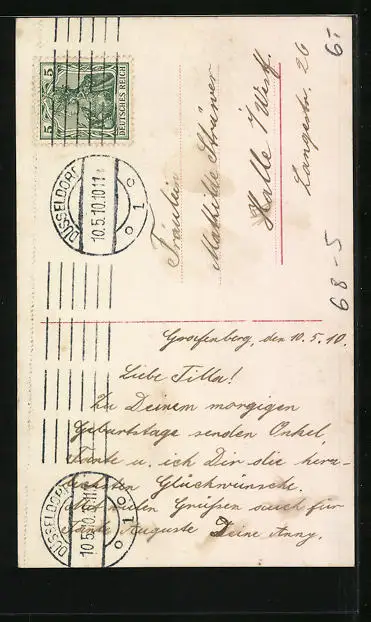 5 5
DEUTSCHES REICH
DÜSSELDORF
10.5.10.10-11
1
Fräulein
Mathilde Strüwer
Halle i/Westf.
Langestr. 26
6.-
68-5
Grafenberg, den 10.5.10.
Liebe Tilla!
Zu Deinem morgigen
Geburtstage senden Onkel,
Tante u. ich Dir die herz-
lichsten Glückwünsche.
Mit vielen Grüßen auch für
Tante Auguste Deine Anny.
DÜSSELDORF
10.5.10.10-11
1